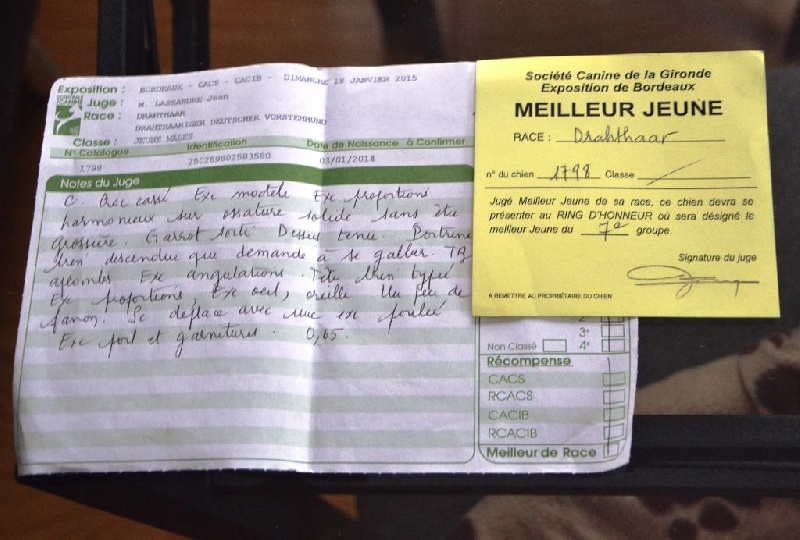 Exposition : BORDEAUX - CACS - CACIB - DIMANCHE 18 JANVIER 2015
Juge : M. LASSANDRE Jean
Race : DRAHTHAAR
DRAHTHAARIGER DEUTSCHER VORSTEHHUND
Classe : JEUNE MALES
N° Catalogue Identification Date de Naissance à Confirmer
1798 250269802583580 03/01/2014
Notes du Juge
C. Exc modèle Exc proportions
harmonieux sur ossature solide sans être
grossière. Garrot sorti Dessus tenu. Poitrine
bien descendue qui demande à se galber. TB
aplombs Exc angulations. Tête bien typée
Exc proportions, Exc oeil, oreille Un peu de
fanon. Se déplace avec une exc foulée
Exc poil et garnitures. 0,65.
Société Canine de la Gironde
Exposition de Bordeaux
MEILLEUR JEUNE
RACE : Drahthaar
n° du chien 1798 Classe
Jugé Meilleur Jeune de sa race, ce chien devra se
présenter au RING D'HONNEUR où sera désigné le
meilleur Jeune du 7e groupe.
Signature du juge
A REMETTRE AU PROPRIÉTAIRE DU CHIEN
3e
Non Classé 4e
Récompense
CACS
RCACS
CACIB
RCACIB
Meilleur de Race